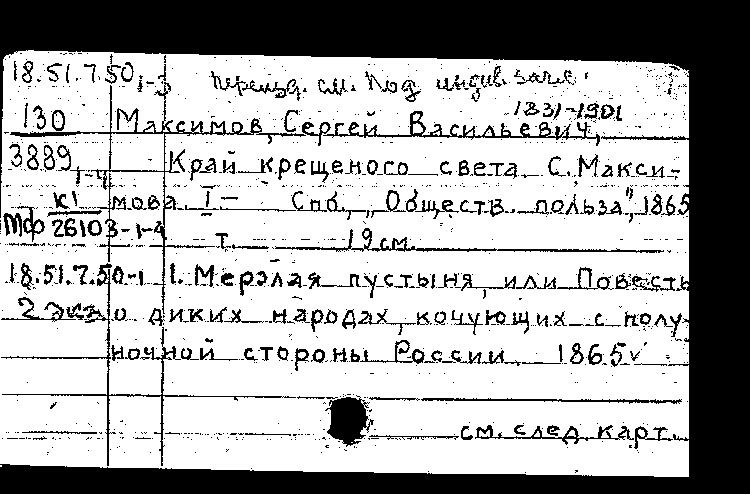 18.51.7.50,1-3 переизд. см. под индив. загл.
1831-1901
130 Максимов, Сергей Васильевич,
3889,1-4 Край крещеного света. С. Макси-
к1 мова. I.- Спб., „Обществ. польза", 1865
Мф 26103-1-4 т. 19 см.
18.51.7.50-1 1. Мерзлая пустыня, или Повесть
2 экз о диких народах, кочующих с полу-
ночной стороны России. 1865 ✓
см. след. карт.